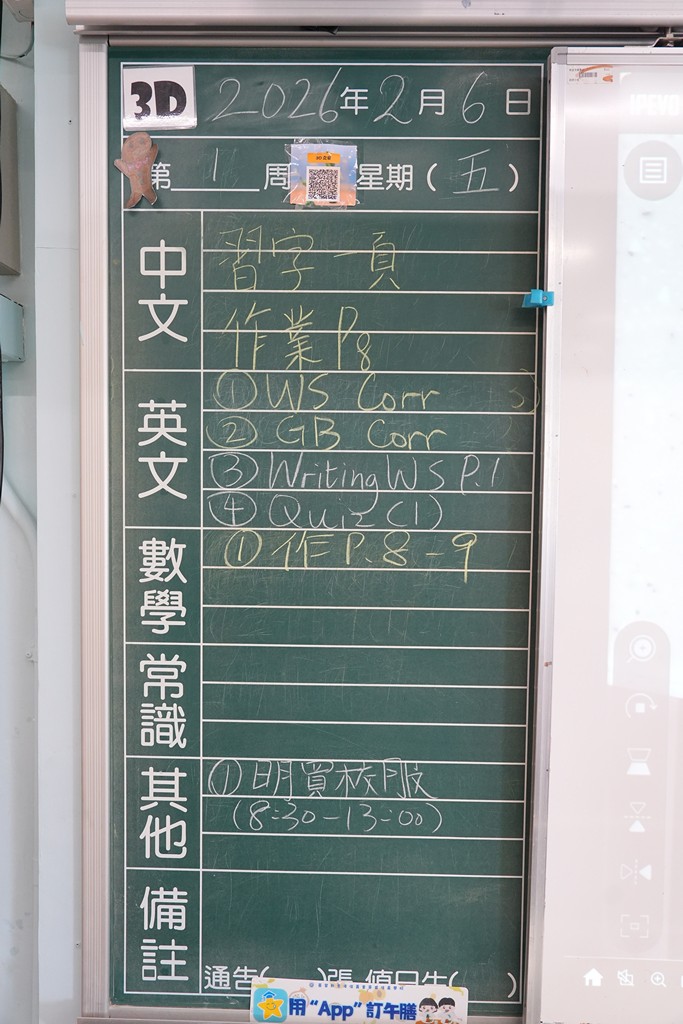 3D 2026年2月6日
第1周 星期(五)
中文
習字一頁
作業P8
英文
① WS Corr
② GB Corr
③ Writing WS P.1
④ Quiz (1)
數學
① 作P.8-9
常識
其他
① 明買校服
(8:30-13:00)
備註
通告( )張 值日生( )
用“App”訂午膳
IPEVO